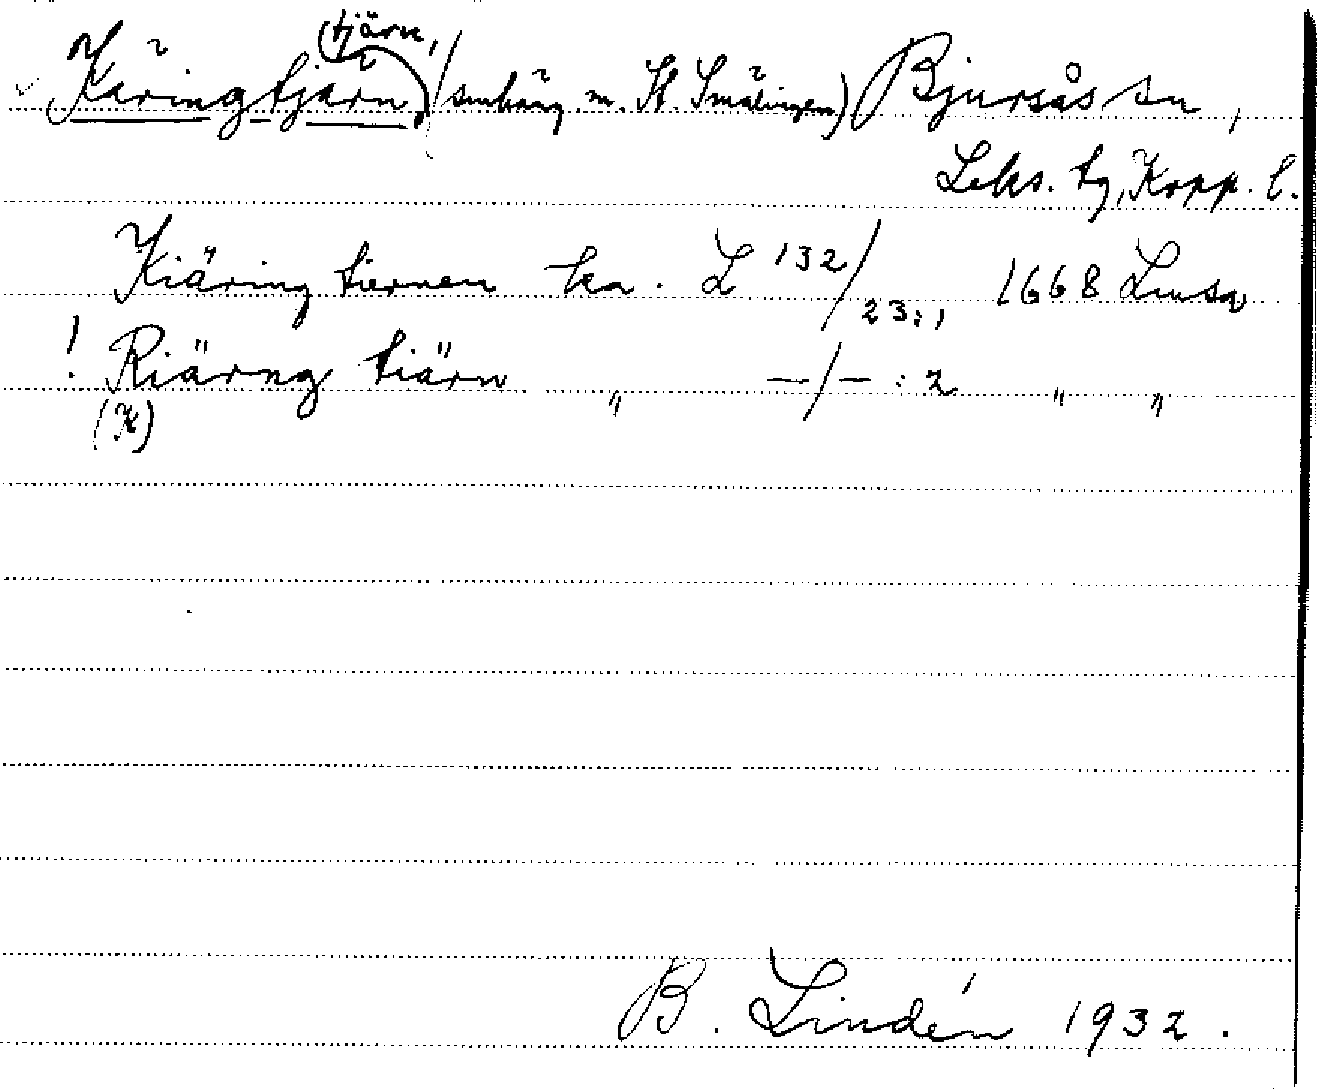 (tjärn,
Käringtjärn (smhäng m. St. Smälingen) Bjursås sn,
Leks. tg, Kopp. l.
Kiäring tiernen ka. L 132/23:1 1668
! Riärng tiärn " —/— : 2 " "
(K)
B. Lindén 1932.